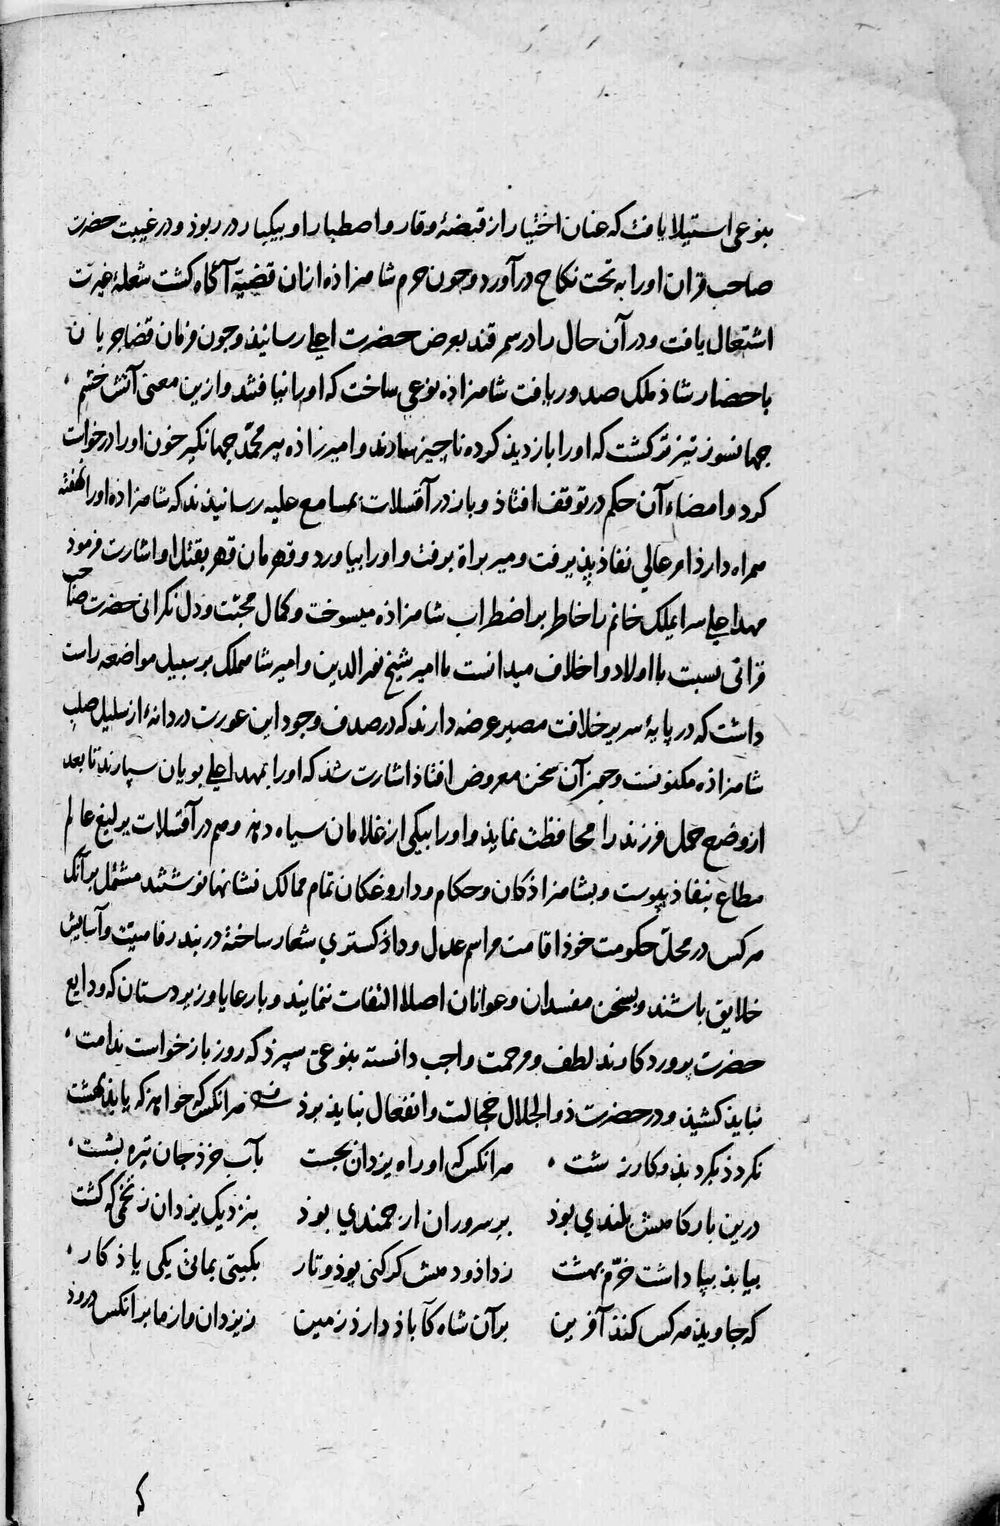 بنوعی استیلا یافت که عنان اختیار از قبضهٔ وقار و اصطبار او بیکبار در ربوذ و در غیبت حضرت
صاحب قران او را به تحت نکاح درآورد و جون حرم شاهزاذه ازان قضیّه آگاه کشت شعلهٔ غیرت
اشتعال یافت و در آن حال را در سمرقند بعرض حضرت اعلی رسانیذ و جون فرمان قضا جریان
باحضار شاذ ملک صدور یافت شاهزاذه نوعی ساخت که او را نیافتند و ازین معنی آتش خشم
جهانسوز تیزتر کشت که او را بازدیذ کرده ناجیز نهادند و امیرزاذه پیر محمّد جهانکیر خون او را درخواست
کرد و امضاء آن حکم در توقف افتاذ و باز در آقسلات بمسامع علیه رسانیذند که شاهزاده او را نهفته
همراه دارذ امر عالی نفاذ پذیرفت و میر براة برفت و او را بیاورد و قهرمان قهر بقتل او اشارت فرموذ
مهد اعلی سرایملک خانم را خاطر بر اضطراب شاهزاذه میسوخت و کمال محبّت و دل نکرانی حضرت صاحب
قرانی نسبت با اولاد و اخلاف میدانست با امیر شیخ نورالدین و امیر شاهملک بر سبیل مواضعه راست
داشت که در پایهٔ سریر خلافت مصیر عرضه دارند که در صدف وجود این عورت دردانهٔ از سلیل صلب
شاهزاذه مکنونست و جون آن سخن معروض افتاذ اشارت شذ که او را بمهد اعلی بویان سپارند تا بعد
از وضع حمل فرزند را محافظت نمایذ و او را بیکی از غلامان سیاه دهذ و هم در آقسلات یرلیغ عالم
مطاع بنفاذ پیوست و بشاهزاذکان و حکام و داروغکان تمام ممالک نشانها نوشتند مشتمل بر آنک
هرکس در محلّ حکومت خوذ اقامت مراسم عدل و داذ کستری شعار ساخته در بند رفاهیت و آسایش
خلایق باشند و بسخن مفسدان و عوانان اصلا التفات ننمایند و با رعایا و زیردستان که ودایع
حضرت پروردکارند لطف و مرحمت واجب دانسته بنوعی سپرذ که روز بازخواست ندامت
نبایذ کشیذ و در حضرت ذو الجلال خجالت و انفعال نبایذ برذ هرانکس که خواهذ که یابذ بهشت
نکردذ بکرد بذ و کار زشت هرانکس که او راه یزدان بجست بآب خرذ جان تیره بشست
درین بارکاهش بلندی بوذ بر سروران ارجمندی بوذ بنزدیک یزدان ز تخمی که کشت
بیابذ بپاداشت خرّم بهشت ز داذ و دهش کر کنی پوذ و تار بکیتی بمانی یکی یاذکار
که جاویذ هرکس کنذ آفرین بر آن شاه کآباذ دارذ زمین ز یزدان و از ما بر انکس دروذ